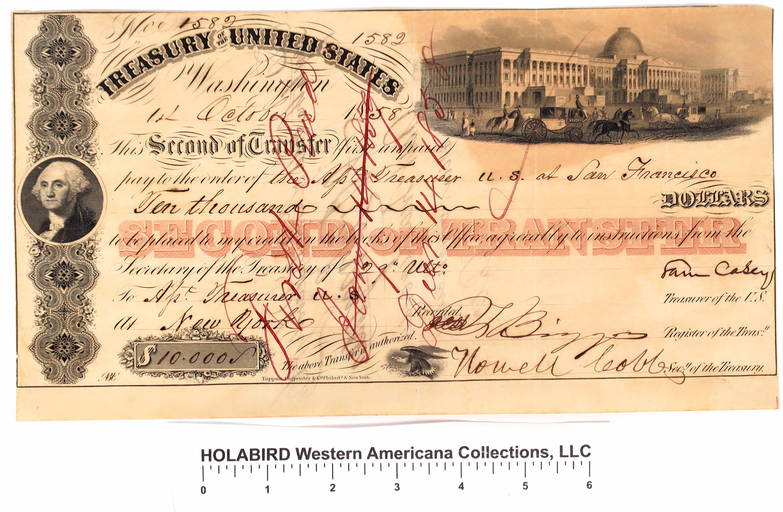 No. 1582
1582
TREASURY OF THE UNITED STATES
Washington
1st October 1858
This Second of Transfer (first unpaid)
pay to the order of the Asst Treasurer U.S. at San Francisco
Ten thousand DOLLARS
SECOND OF TRANSFER
to be placed to my credit on the books of that Office, agreeably to instructions from the
Secretary of the Treasury of 29th Ulto
Sam Casey
To Asst Treasurer U.S.
Treasurer of the U.S.
At New York
Recorded
Register of the Treasy
$10.000
The above Transfer authorized.
Howell Cobb
Secy of the Treasury.
No.
HOLABIRD Western Americana Collections, LLC
0 1 2 3 4 5 6